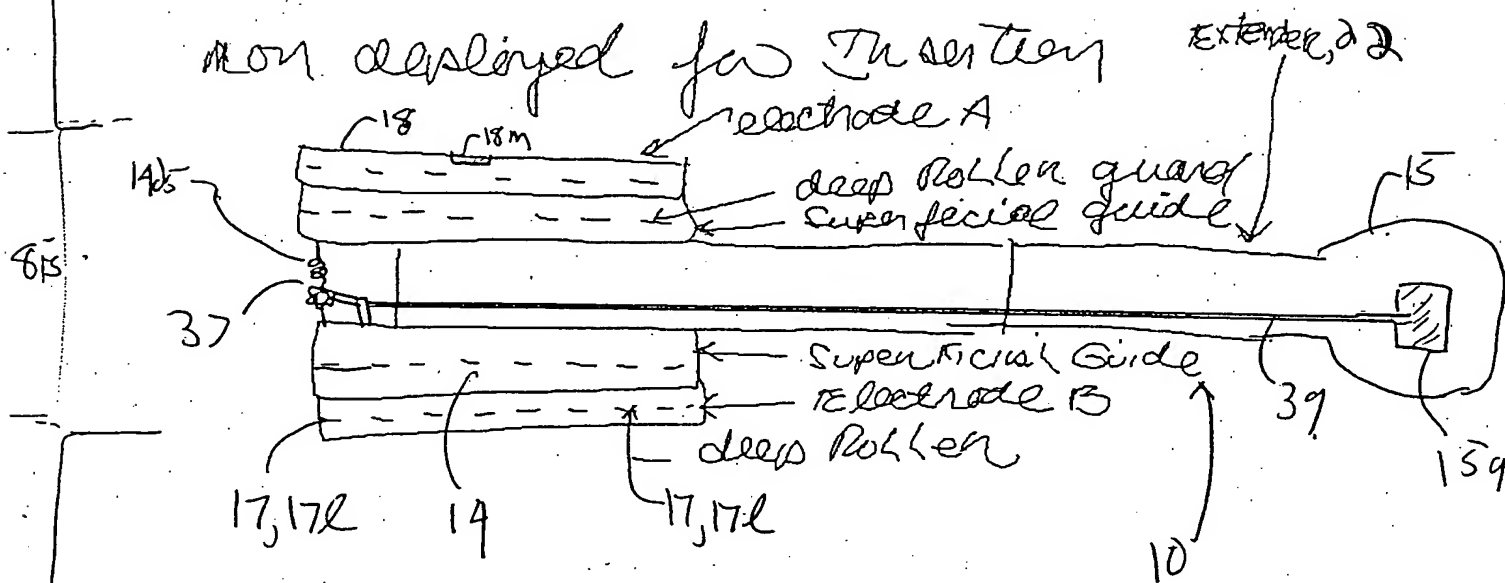 non deployed for Insertion
Extender, 22
electrode A
18
18m
14ds
deep Roller guard
15
Superficial guide
85
37
Superficial Guide
Electrode B
39
deep Roller
15g
17, 17l
14
17, 17l
10